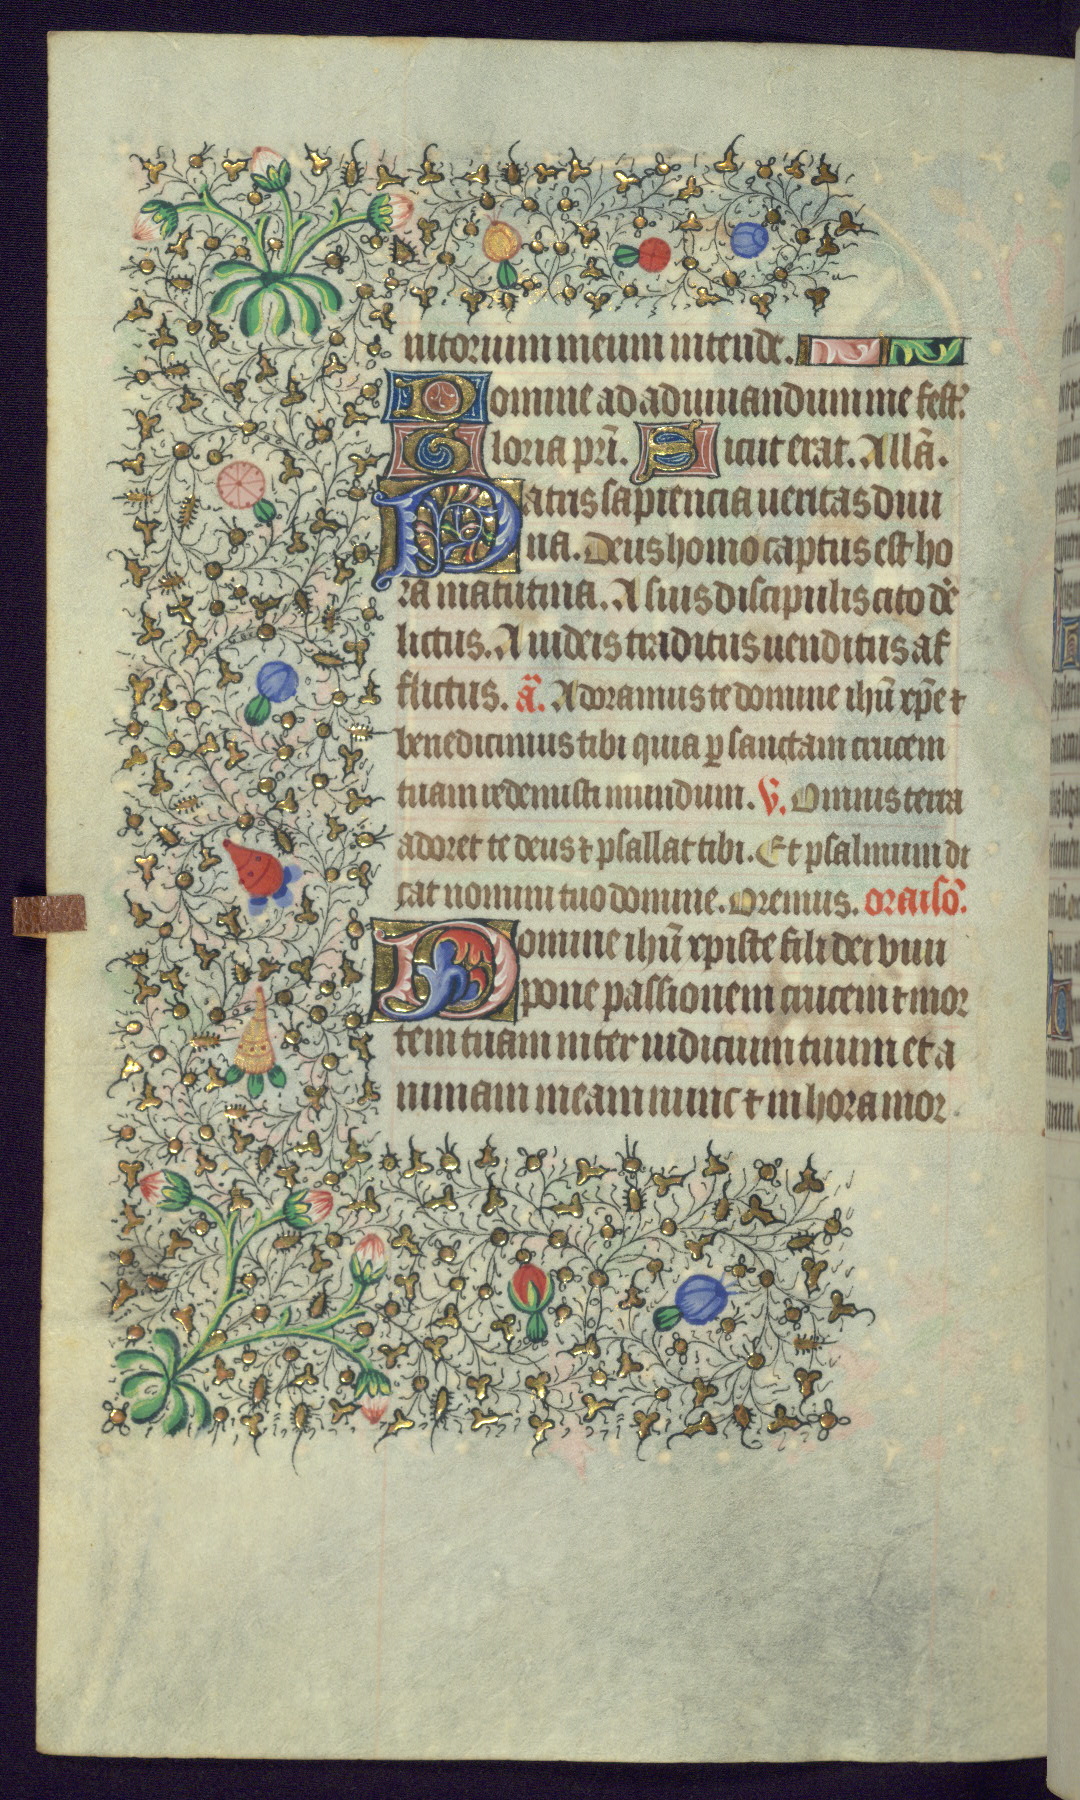 iutorium meum intende.
Domine ad adiuuandum me fest.
Gloria pr̃i. Sicut erat. Allã.
Patris sapiencia ueritas diui
na. Deus homo captus est ho
ra matutina. A suis discipulis cito de
lictus. A iudeis traditus uenditus af
flictus. ã. Adoramus te domine ihũ xp̃e ⁊
benedicimus tibi quia ꝑ sanctam crucem
tuam redemisti mundum. V. Omnis terra
adoret te deus ⁊ psallat tibi. Et psalmum di
cat nomini tuo domine. Oremus. oraisõ.
Domine ihũ xpiste fili dei viui
pone passionem crucem ⁊ mor
tem tuam inter iudicium tuum et a
nimam meam nunc ⁊ in hora mor